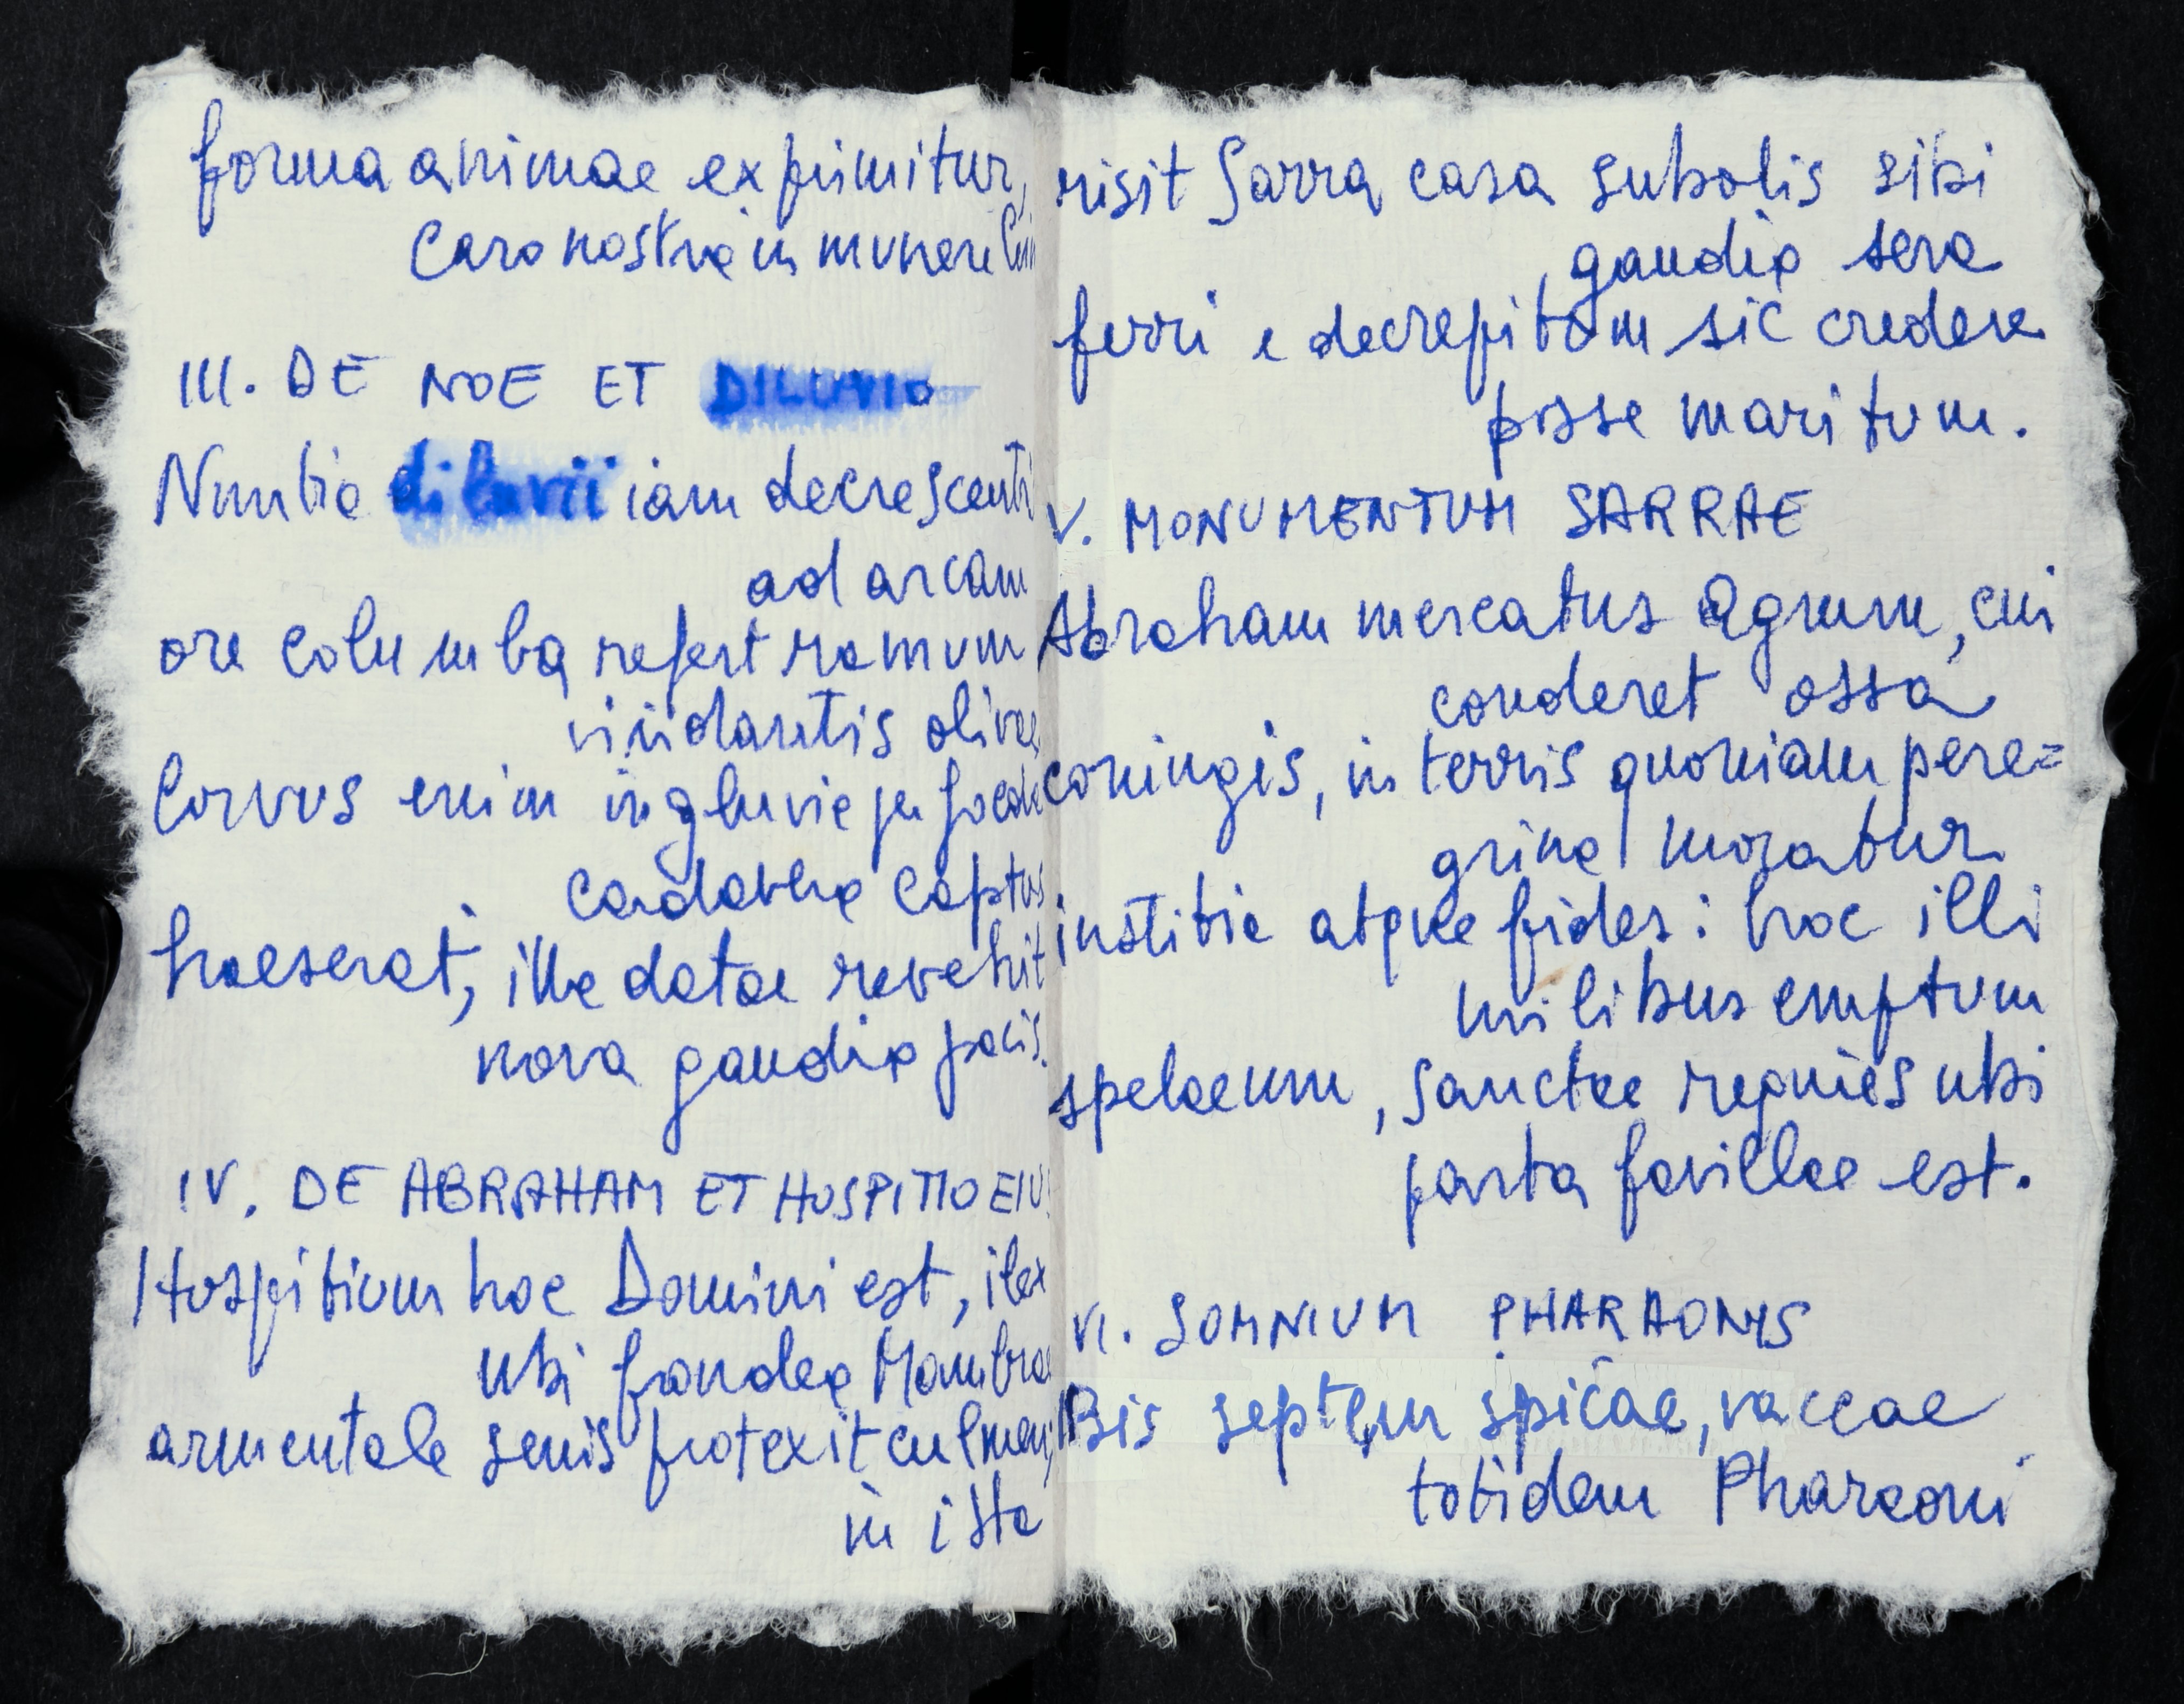 forma animae exprimitur,
caro nostra in munere
III. DE NOE ET DILUVIO
Nuntia diluvii iam decrescenti
ad arcam
ore columba refert ramum
viridantis olivae
Corvus enim ingluvie per foeda
cadavera captus
haeserat, illa datae revehit
nova gaudia pacis.
IV. DE ABRAHAM ET HOSPITIO EIUS
Hospitium hoc Domini est, ilex
ubi frondea Mambrae
armentale senis protexit culmen,
in ista
risit Sarra casa subolis sibi
gaudia sera
ferri e decrepitum sic credere
posse maritum.
V. MONUMENTUM SARRAE
Abraham mercatus agrum, cui
conderet ossa
coniugis, in terris quoniam pere=
grina moratur
iustitia atque fides: hoc illi
milibus emptum
spelaeum, sanctae requies ubi
parta favillae est.
VI. SOMNIUM PHARAONIS
Bis septem spicae, vaccae
totidem Pharaoni